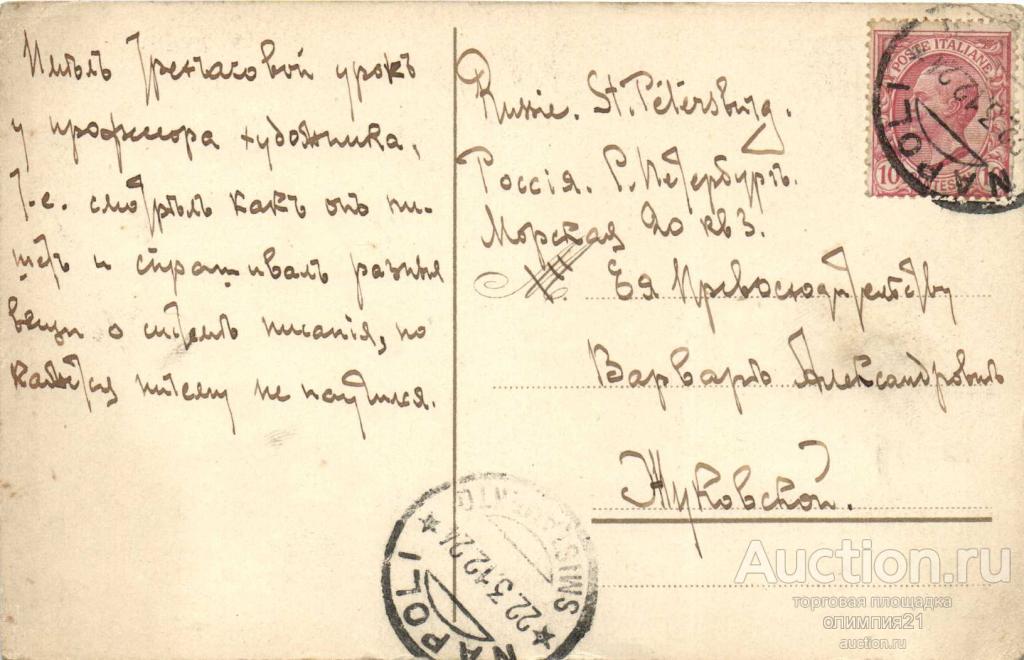 Имѣлъ трехчасовой урокъ
у профессора художника,
т.-е. смотрѣлъ какъ онъ пи-
шетъ и спрашивалъ разныя
вещи о стилѣ писанія, но
кажется ничему не научился.
Russie. St. Pétersburg.
Россія. С. Петербургъ.
Морская 20 кв 3.
М.
Ея Превосходительству
Варварѣ Александровнѣ
Жуковской.
POSTE ITALIANE
10
NAPOLI
NAPOLI
22.3.12.24
SMIST
Auction.ru
торговая площадка
олимпия21
auction.ru